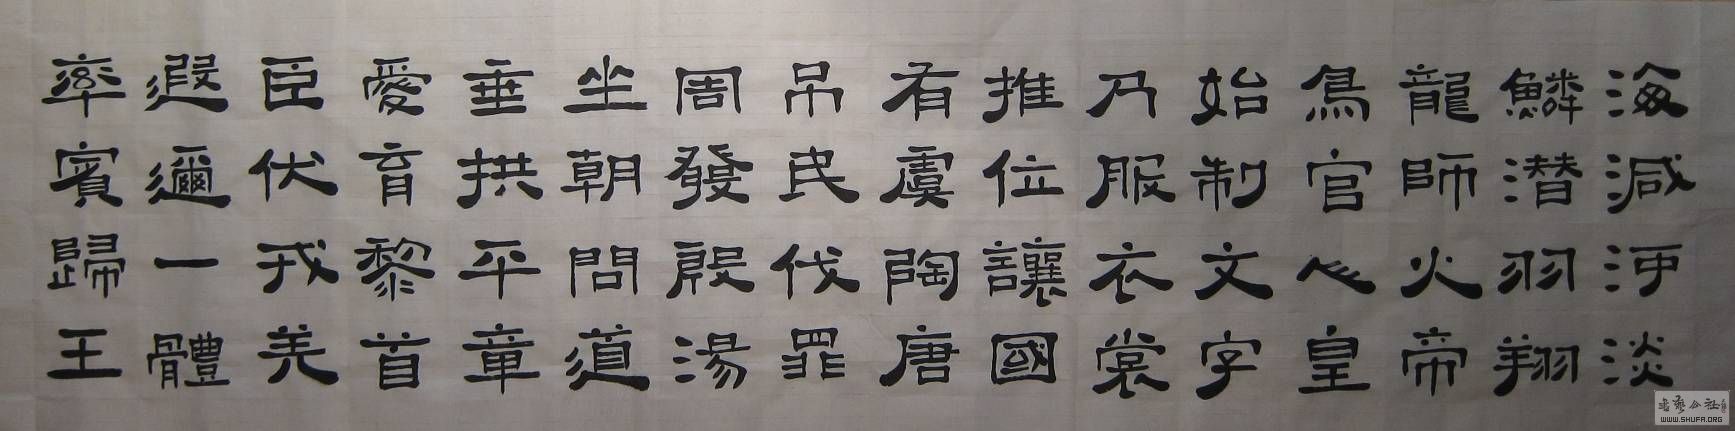 海減河淡
鱗潜羽翔
龍師火帝
鳥官人皇
始制文字
乃服衣裳
推位讓國
有虞陶唐
吊民伐罪
周發殷湯
坐朝問道
垂拱平章
愛育黎首
臣伏戎羌
遐邇一體
率賓歸王
書藝公社
WWW.SHUFA.ORG